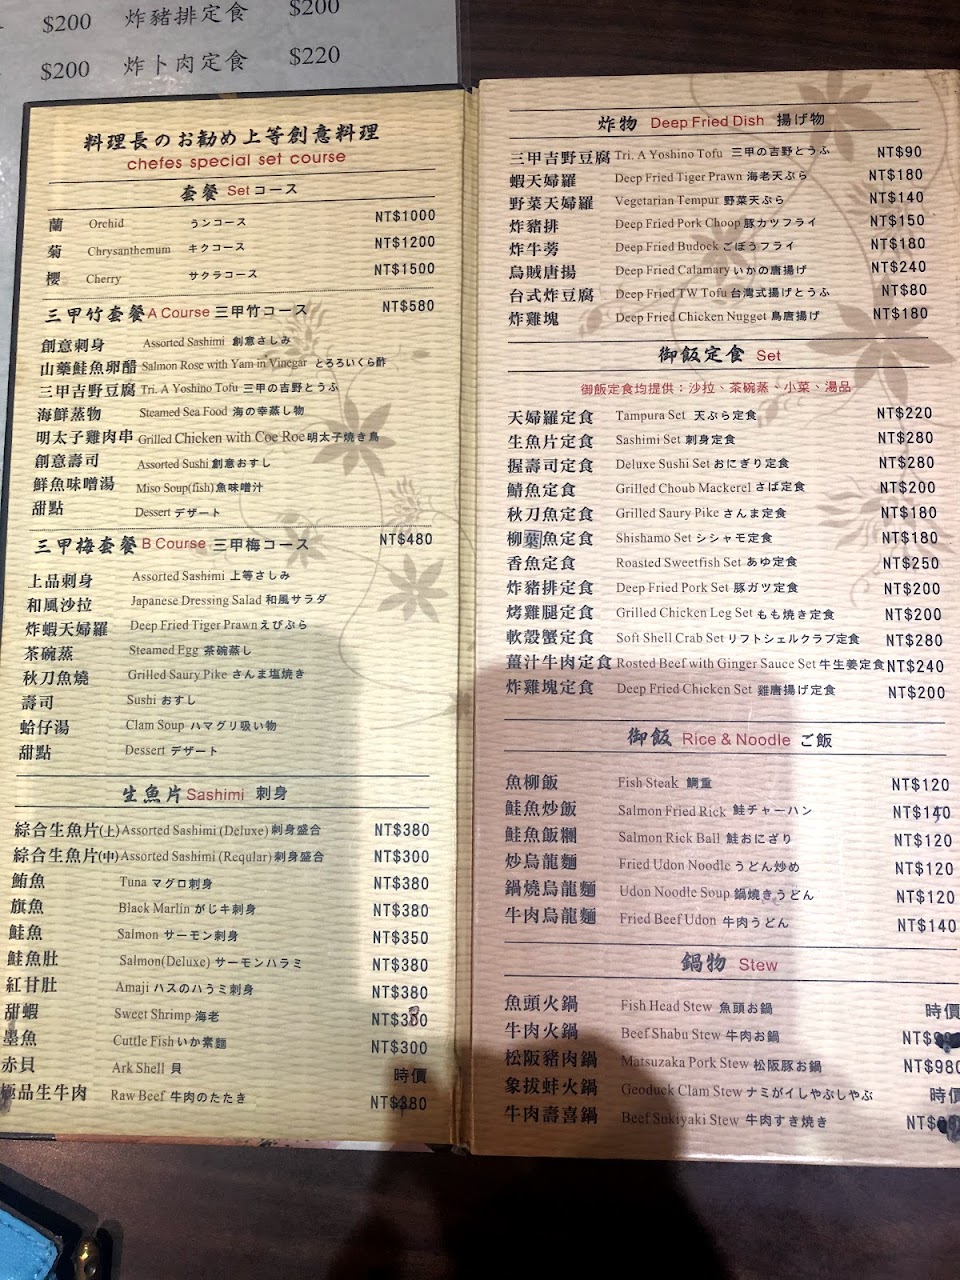 $200 炸豬排定食 $200
$200 炸卜肉定食 $220
料理長のお勧め上等創意料理
chefes special set course
套餐 Set コース
蘭 Orchid うンコース NT$1000
菊 Chrysanthemum キクコース NT$1200
櫻 Cherry サクラコース NT$1500
三甲竹套餐 A Course 三甲竹コース NT$580
創意刺身 Assorted Sashimi 創意さしみ
山藥鮭魚卵醋 Salmon Rose with Yam in Vinegar とろろいくら酢
三甲吉野豆腐 Tri. A Yoshino Tofu 三甲の吉野とうふ
海鮮蒸物 Steamed Sea Food 海の幸蒸し物
明太子雞肉串 Grilled Chicken with Coe Roe 明太子焼き鳥
創意壽司 Assorted Sushi 創意おすし
鮮魚味噌湯 Miso Soup(fish) 魚味噌汁
甜點 Dessert デザート
三甲梅套餐 B Course 三甲梅コース NT$480
上品刺身 Assorted Sashimi 上等さしみ
和風沙拉 Japanese Dressing Salad 和風サラダ
炸蝦天婦羅 Deep Fried Tiger Prawn えびぷら
茶碗蒸 Steamed Egg 茶碗蒸し
秋刀魚燒 Grilled Saury Pike さんま塩焼き
壽司 Sushi おすし
蛤仔湯 Clam Soup ハマグリ吸い物
甜點 Dessert デザート
生魚片 Sashimi 刺身
綜合生魚片(上) Assorted Sashimi (Deluxe) 刺身盛合 NT$380
綜合生魚片(中) Assorted Sashimi (Reqular) 刺身盛合 NT$300
鮪魚 Tuna マグロ刺身 NT$380
旗魚 Black Marlin がじキ刺身 NT$380
鮭魚 Salmon サーモン刺身 NT$350
鮭魚肚 Salmon(Deluxe) サーモンハラミ NT$380
紅甘肚 Amaji ハスのハうミ刺身 NT$380
甜蝦 Sweet Shrimp 海老
墨魚 Cuttle Fish いか素麺 NT$300
赤貝 Ark Shell 貝 時價
極品生牛肉 Raw Beef 牛肉のたたき NT$380
炸物 Deep Fried Dish 揚げ物
三甲吉野豆腐 Tri. A Yoshino Tofu 三甲の吉野とうふ NT$90
蝦天婦羅 Deep Fried Tiger Prawn 海老天ぷら NT$180
野菜天婦羅 Vegetarian Tempur 野菜天ぷら NT$140
炸豬排 Deep Fried Pork Choop 豚カツフライ NT$150
炸牛蒡 Deep Fried Budock ごぼうフライ NT$180
烏賊唐揚 Deep Fried Calamary いかの唐揚げ NT$240
台式炸豆腐 Deep Fried TW Tofu 台灣式揚げとうふ NT$80
炸雞塊 Deep Fried Chicken Nugget 鳥唐揚げ NT$180
御飯定食 Set
御飯定食均提供：沙拉、茶碗蒸、小菜、湯品
天婦羅定食 Tampura Set 天ぷら定食 NT$220
生魚片定食 Sashimi Set 刺身定食 NT$280
握壽司定食 Deluxe Sushi Set おにぎり定食 NT$280
鯖魚定食 Grilled Choub Mackerel さば定食 NT$200
秋刀魚定食 Grilled Saury Pike さんま定食 NT$180
柳葉魚定食 Shishamo Set シシャモ定食 NT$180
香魚定食 Roasted Sweetfish Set あゆ定食 NT$250
炸豬排定食 Deep Fried Pork Set 豚ガツ定食 NT$200
烤雞腿定食 Grilled Chicken Leg Set もも焼き定食 NT$200
軟殼蟹定食 Soft Shell Crab Set リフトシェルクラブ定食 NT$280
薑汁牛肉定食 Rosted Beef with Ginger Sauce Set 牛生姜定食 NT$240
炸雞塊定食 Deep Fried Chicken Set 雞唐揚げ定食 NT$200
御飯 Rice & Noodle ご飯
魚柳飯 Fish Steak 鯛重 NT$120
鮭魚炒飯 Salmon Fried Rick 鮭チャーハン
鮭魚飯糰 Salmon Rick Ball 鮭おにざり NT$120
炒烏龍麵 Fried Udon Noodle うどん炒め NT$120
鍋燒烏龍麵 Udon Noodle Soup 鍋燒きうどん NT$120
牛肉烏龍麵 Fried Beef Udon 牛肉うどん NT$140
鍋物 Stew
魚頭火鍋 Fish Head Stew 魚頭お鍋 時價
牛肉火鍋 Beef Shabu Stew 牛肉お鍋
松阪豬肉鍋 Matsuzaka Pork Stew 松阪豚お鍋 NT$980
象拔蚌火鍋 Geoduck Clam Stew ナミがイしやぶしやぶ 時價
牛肉壽喜鍋 Beef Sukiyaki Stew 牛肉すき焼き